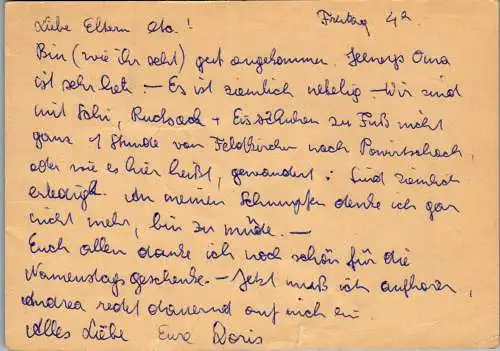 Liebe Eltern etc.! Freitag 4h
Bin (wie ihr seht) gut angekommen. Oma
ist sehr lieb – Es ist ziemlich nebelig – Wir sind
mit Schi, Rucksack + Eisschuhen zu Fuß nicht
ganz 1 Stunde von Feldkirchen nach
oder wie es hier heißt, gewandert: Sind ziemlich
erledigt. An meinen Schnupfen denke ich gar
nicht mehr, bin zu müde. –
Euch allen danke ich noch schön für die
Namenstagsgeschenke. – Jetzt muß ich aufhören,
Andrea redet dauernd auf mich ein.
Alles Liebe Eure Doris